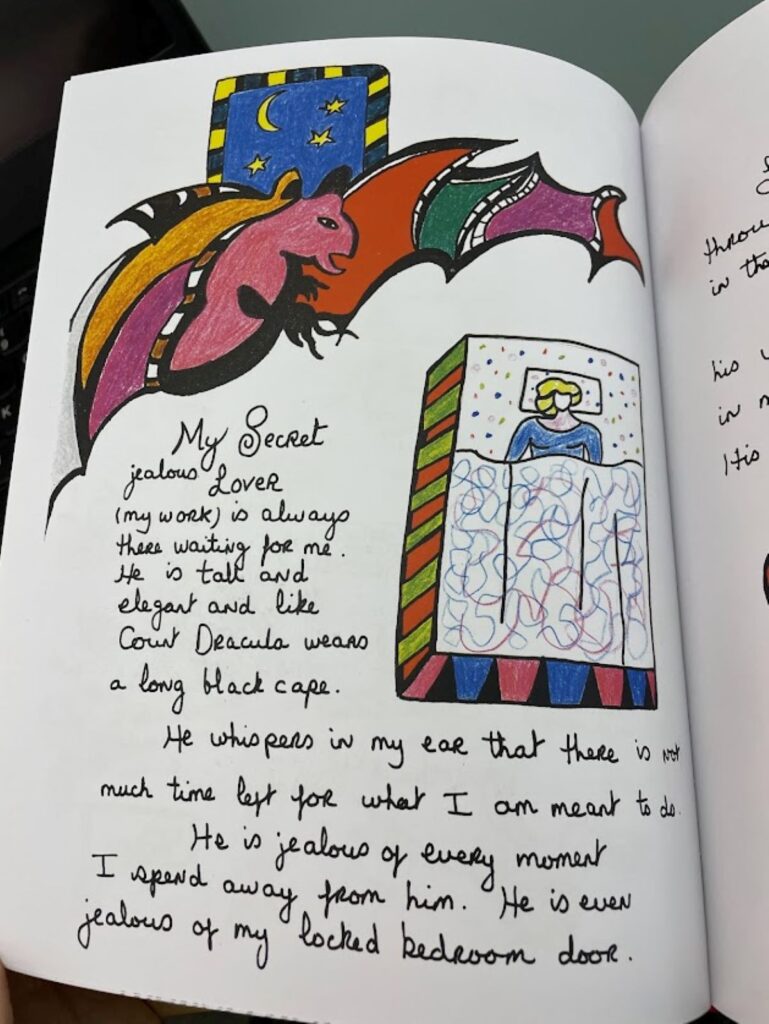 My Secret
jealous Lover
(my work) is always
there waiting for me.
He is tall and
elegant and like
Count Dracula wears
a long black cape.
He whispers in my ear that there is not
much time left for what I am meant to do.
He is jealous of every moment
I spend away from him. He is even
jealous of my locked bedroom door.
throu
in the
his
in
His